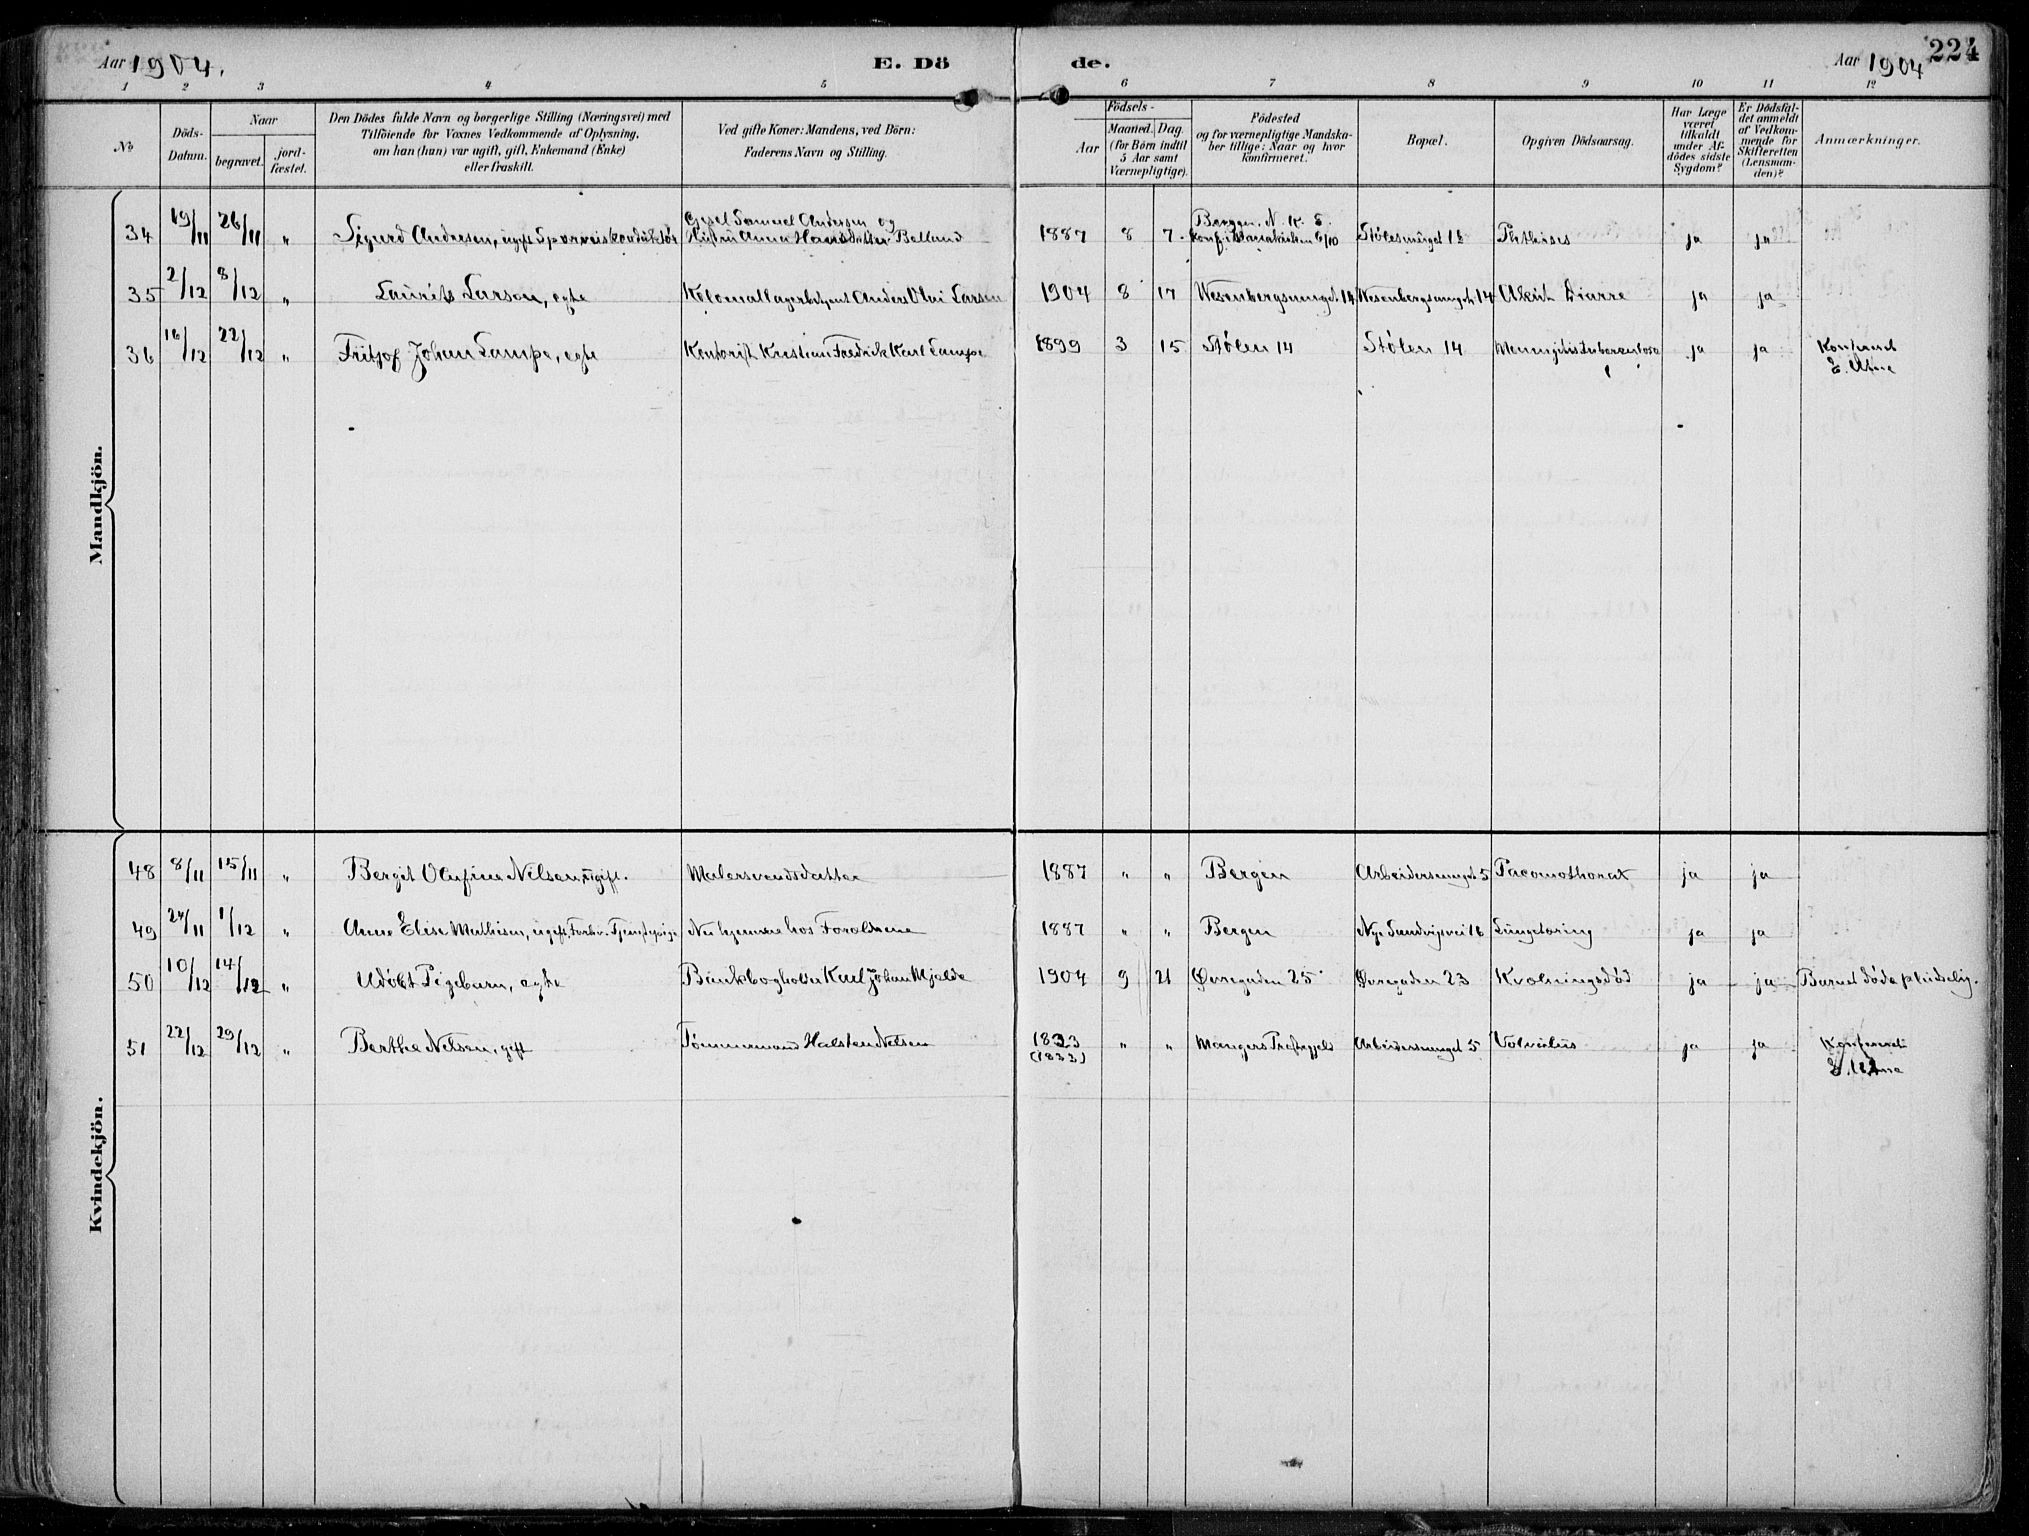 Aar 1904.
E. Döde.
Aar 1904
224
1 2 3 4 5 6 7 8 9 10 11 12
No
Döds-Datum.
Naar
begravet.
jord-fæstet.
Den Dödes fulde Navn og borgerlige Stilling (Næringsvei) med
Tilföiende for Voxnes Vedkommende af Oplysning,
om han (hun) var ugift, gift, Enkemand (Enke)
eller fraskilt.
Ved gifte Koner: Mandens, ved Börn:
Faderens Navn og Stilling.
Födsels-
Aar
Maaned. Dag.
(for Börn indtil
5 Aar samt
Værnepligtige).
Födested
og for værnepligtige Mandska-
ber tillige: Naar og hvor
konfirmeret.
Bopæl.
Opgiven Dödsaarsag.
Har Læge
været
tilkaldt
under Af-
dödes sidste
Sygdom?
Er Dödsfal-
det anmeldt
af Vedkom-
mende for
Skifteretten
(Lensman-
den)?
Anmærkninger.
Mandkjön.
34 19/11 26/11 " Sigurd Andresen, ugift Sporveiskonduktör Gjest Samuel Andersen og Hustru Anna Hansdatter Bolland 1887 8 7 Bergen, N. K. S. konf. i Mariakirken 6/10 Stölesmuget 18 Phthisis ja ja
35 2/12 8/12 " Laurits Larsen, egte Kolonial lagerbetjent Anders Olai Larsen 1904 8 17 Wesenbergsmuget 14 Wesenbergsmuget 14 Akut Diarre ja ja
36 16/12 22/12 " Fritjof Johan Lampe, egte Kontorist Kristian Fredrik Karl Lampe 1899 3 15 Stölen 14 Stölen 14 Meningitis tuberculosa ja ja Konfereret
E. Utne
Kvindekjön.
48 8/11 15/11 " Berget Olufine Nilsen, ugift. Malersvendsdatter 1887 " " Bergen Arbeidersmuget 5 Pneumothorax ja ja
49 24/11 1/12 " Anne Elise Mathisen, ugift, Forhv. Tjenestepige Nu hjemme hos Forældrene 1887 " " Bergen Nye Sandviksvei 18 Lungetæring ja ja
50 10/12 14/12 " Udöbt Pigebarn, egte Bankbogholder Karl Johan Mjelde 1904 9 21 Övregaden 25 Övregaden 23 Kvælningsdöd ja ja Barnet döde pludselig.
51 22/12 29/12 " Berthe Nilsen, gift Tömmermand Halsten Nilsen 1833
(1833) " " Mangers Præstegjeld Arbeidersmuget 5 Volvulus ja ja Konfereret
E. Utne